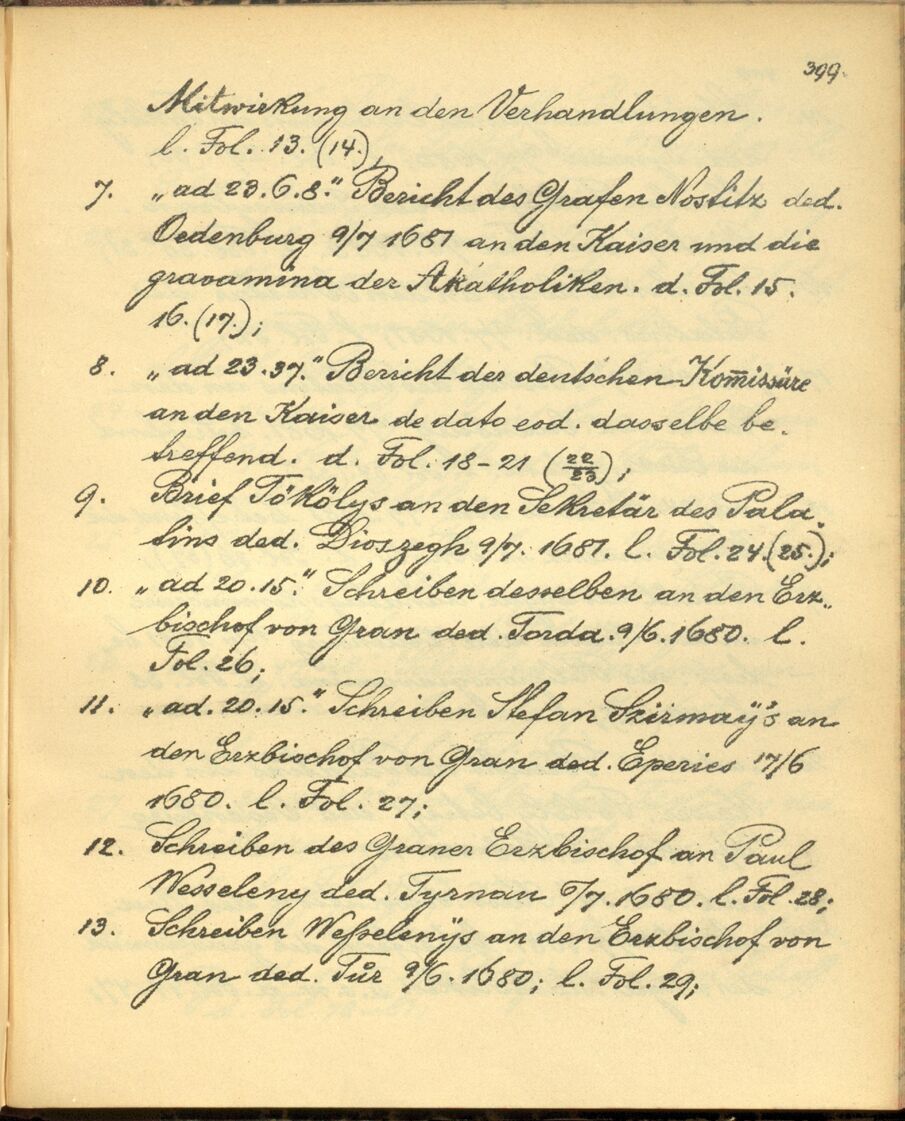 399.
Mitwirkung an den Verhandlungen.
l. Fol. 13. (14.),
7. „ad 23.6.8.“ Bericht des Grafen Nostitz ded.
Oedenburg 9/7 1681 an den Kaiser und die
gravamina der Akatholiken. d. Fol. 15.
16. (17.);
8. „ad 23.37.“ Bericht der deutschen Kom̅issäre
an den Kaiser de dato eod. dasselbe be-
treffend. d. Fol. 18-21 (22/23);
9. Brief Tökölys an den Sekretär des Pala-
tins ded. Dioszegh 9/7. 1681. l. Fol. 24. (25.);
10. „ad 20.15.“ Schreiben desselben an den Erz-
bischof von Gran ded. Torda. 9/6. 1680. l.
Fol. 26;
11. „ad. 20.15.“ Schreiben Stefan Szirmaÿ's an
den Erzbischof von Gran ded. Eperies 17/6
1680. l. Fol. 27;
12. Schreiben des Graner Erzbischof an Paul
Wesseleny ded. Tyrnau /7. 1680. l. Fol. 28;
13. Schreiben Weßelenÿs an den Erzbischof von
Gran ded. Tůr 9/6. 1680; l. Fol. 29;